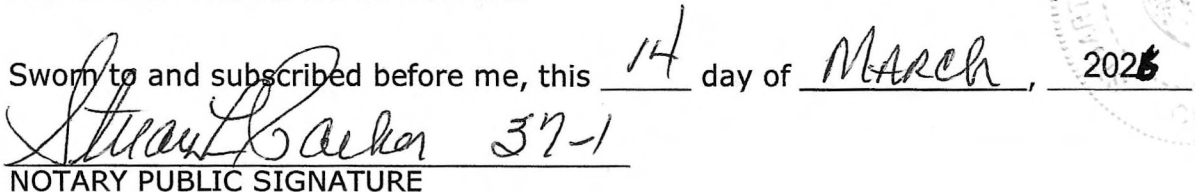 Sworn to and subscribed before me, this 14 day of MARCH, 2026
37-1
NOTARY PUBLIC SIGNATURE